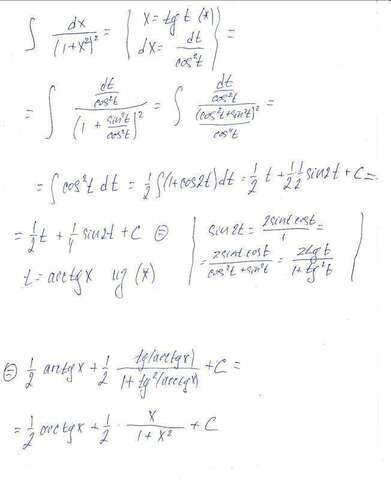 ∫ dx/(1+x²)² = { x = tg t (*) dx = dt/cos²t } =
= ∫ (dt/cos²t)/(1 + sin²t/cos²t)² = ∫ (dt/cos²t)/((cos²t+sin²t)²/cos⁴t) =
= ∫ cos²t dt = 1/2 ∫(1+cos2t)dt = 1/2 t + 1/2 1/2 sin2t + C =
= 1/2 t + 1/4 sin2t + C ⊜ | sin2t = 2sint cost/1 =
t = arctgx из (*) = 2sint cost/(cos²t+sin²t) = 2tgt/(1+tg²t) |
⊜ 1/2 arctgx + 1/2 tg(arctgx)/(1+tg²(arctgx)) + C =
= 1/2 arctgx + 1/2 · x/(1+x²) + C